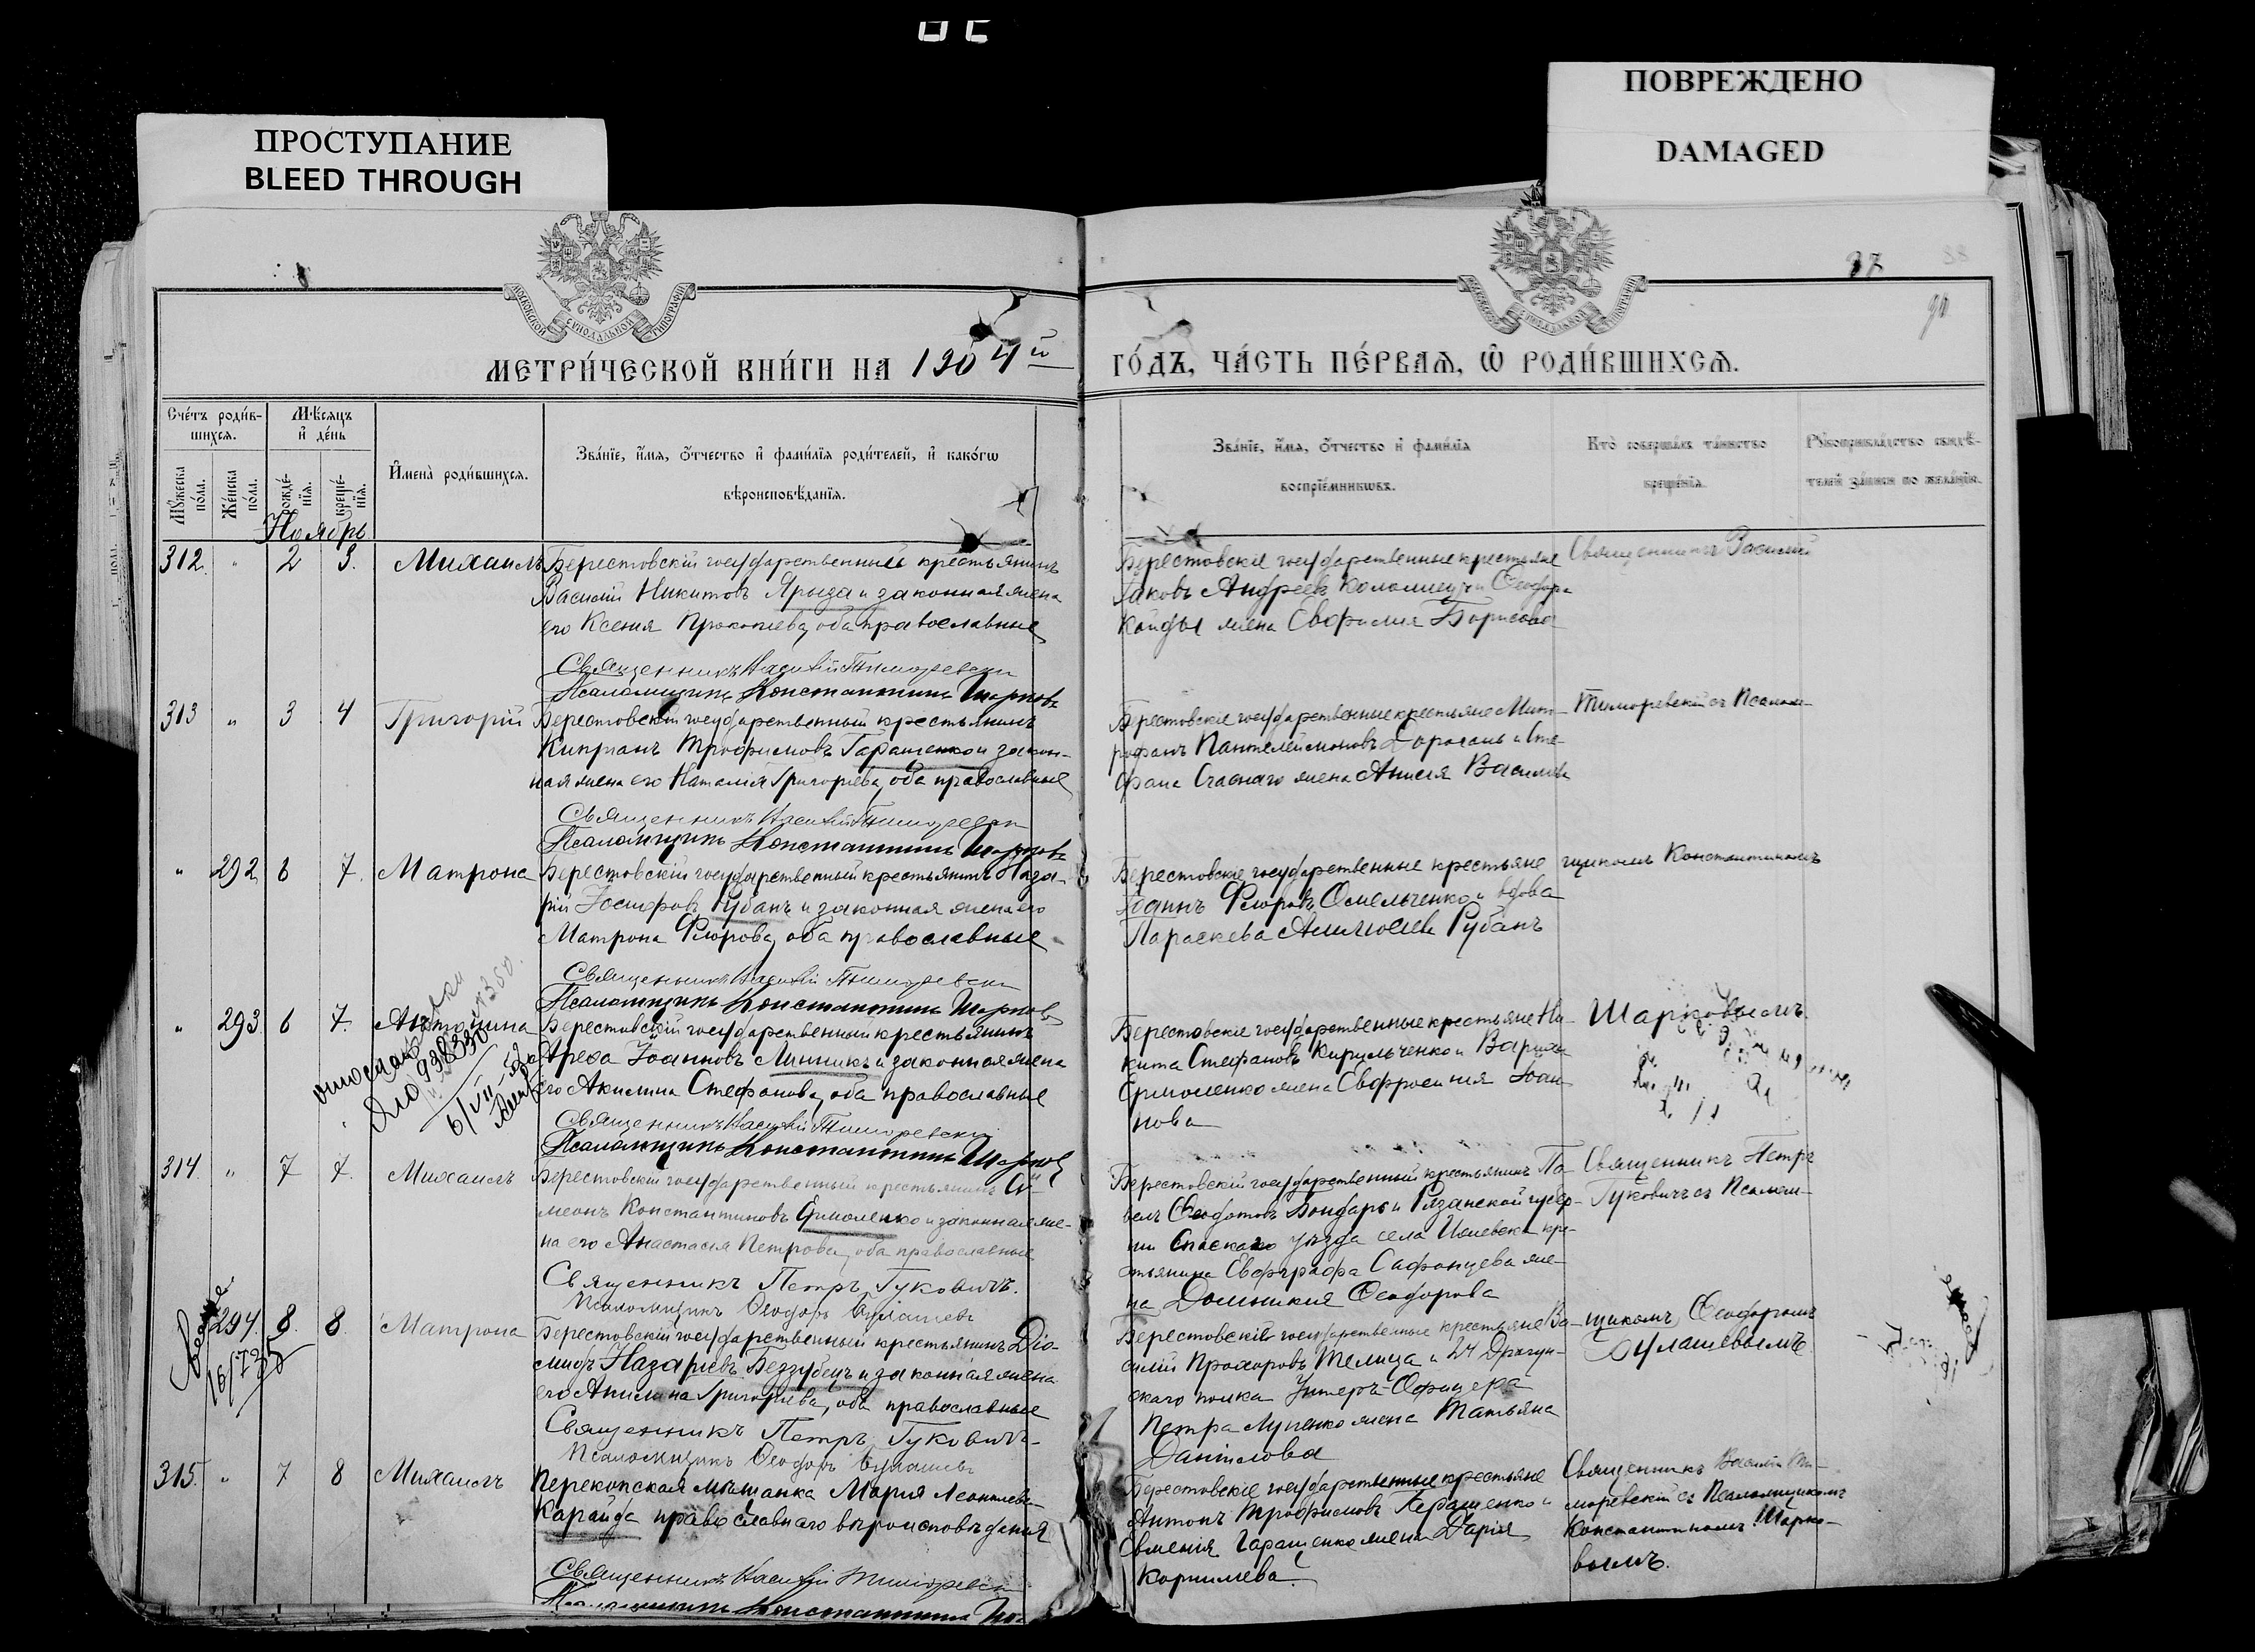 ПРОСТУПАНИЕ
BLEED THROUGH
ПОВРЕЖДЕНО
DAMAGED
37
МОСКОВСКОЙ СѴНОДАЛЬНОЙ ТИПОГРАФІИ
МОСКОВСКОЙ СѴНОДАЛЬНОЙ ТИПОГРАФІИ
МЕТРИ́ЧЕСКОЙ КНИ́ГИ НА 1904й
ГО́ДЪ, ЧА́СТЬ ПЕ́РВАЯ, Ѿ РОДИ́ВШИХСЯ.
Сче́тъ роди́в-
шихся.
Мѣсяцъ
и де́нь
Му́жеска
по́ла.
Же́нска
по́ла.
рожде́-
нія.
креще́-
нія.
Имена̀ роди́вшихся.
Зва́ніе, и́мя, о́тчество и фами́лія роди́телей, и како́гѡ
вѣроисповѣ́данія.
Зва́ніе, и́мя, о́тчество и фами́лія
воспріе́мниковъ.
Кто̀ соверша́лъ та́инство
креще́нія.
Рукоприкла́дство свидѣ́-
телей за́писи по жела́нію.
Ноябрь
312 " 2 3. Михаилъ Берестовскій государственный крестьянинъ
Василій Никитовъ Ярыга и законная жена
его Ксенія Прокопіева, оба православные
Священникъ Василій Тиморевскій
Псаломщикъ Константинъ Шарковъ
Берестовскіе государственные крестьяне
Іаковъ Андреевъ Коломиецъ и Ѳеодора
Койды жена Евфимія Борисова
Священникъ Василій
313 " 3 4 Григорій Берестовскій государственный крестьянинъ
Кипріанъ Трофимовъ Гаращенко и закон-
ная жена его Наталія Григорьева, оба православные
Священникъ Василій Тиморевскій
Псаломщикъ Константинъ Шарковъ
Берестовскіе государственные крестьяне Мит-
рофанъ Пантелеймоновъ Дорошъ и Сте-
фана Счаснаго жена Анисія Васильева
Тиморевскій съ Псалом-
" 292 6 7. Матрона Берестовскій государственный крестьянинъ Наза-
рій Іосифовъ Рубанъ и законная жена его
Матрона Флорова, оба православные
Священникъ Василій Тиморевскій
Псаломщикъ Константинъ Шарковъ
Берестовскіе государственные крестьяне
Іоаннъ Флоровъ Омельченко и вдова
Параскева Рубанъ
щикомъ Константиномъ
" 293 6 7. Антонина Берестовскій государственный крестьянинъ
Арефа Іоанновъ Линникъ и законная жена
его Акилина Стефанова, оба православные
Священникъ Василій Тиморевскій
Псаломщикъ Константинъ Шарковъ
Берестовскіе государственные крестьяне Ни-
кита Стефановъ Кирильченко и
Ермоленко жена Евфросинія Іоан-
нова
Шарковымъ.
314. " 7 7. Михаилъ Берестовскій государственный крестьянинъ Сѵ-
меонъ Константиновъ Ермоленко и законная же-
на его Анастасія Петрова, оба православные
Священникъ Петръ Гуковичъ.
Псаломщикъ Ѳеодоръ Булашевъ
Берестовскій государственный крестьянинъ Па-
велъ Ѳеодотовъ Бондарь и Рязанской губер-
ніи Спаскаго уѣзда села Ижевска кре-
стьянина Евграфа Сафонцева же-
на Домникія Ѳеодорова
Священникъ Петръ
Гуковичъ съ Псалом-
294. 8. 8 Матрона Берестовскій государственный крестьянинъ Діо-
мидъ Назаріевъ Беззубецъ и законная жена
его Акилина Григорьева, оба православные
Священникъ Петръ Гуковичъ
Псаломщикъ Ѳеодоръ Булашевъ
Берестовскіе государственные крестьяне Ва-
силій Прохоровъ Телица и 24 Драгун-
скаго полка Унтеръ-Офицера
Петра Луценко жена Татьяна
Даніилова
щикомъ Ѳеодоромъ
Булашевымъ.
315. " 7 8 Михаилъ Перекопская мѣщанка Марія Леонтьева
Карайда православнаго вѣроисповѣданія
Священникъ Василій Тиморевскій
Псаломщикъ Константинъ
Берестовскіе государственные крестьяне
Антонъ Трофимовъ Геращенко и
Евменія Гаращенко жена Дарія
Корнилева.
Священникъ Василій Ти-
моревскій съ Псаломщикомъ
Константиномъ Шарко-
вымъ.